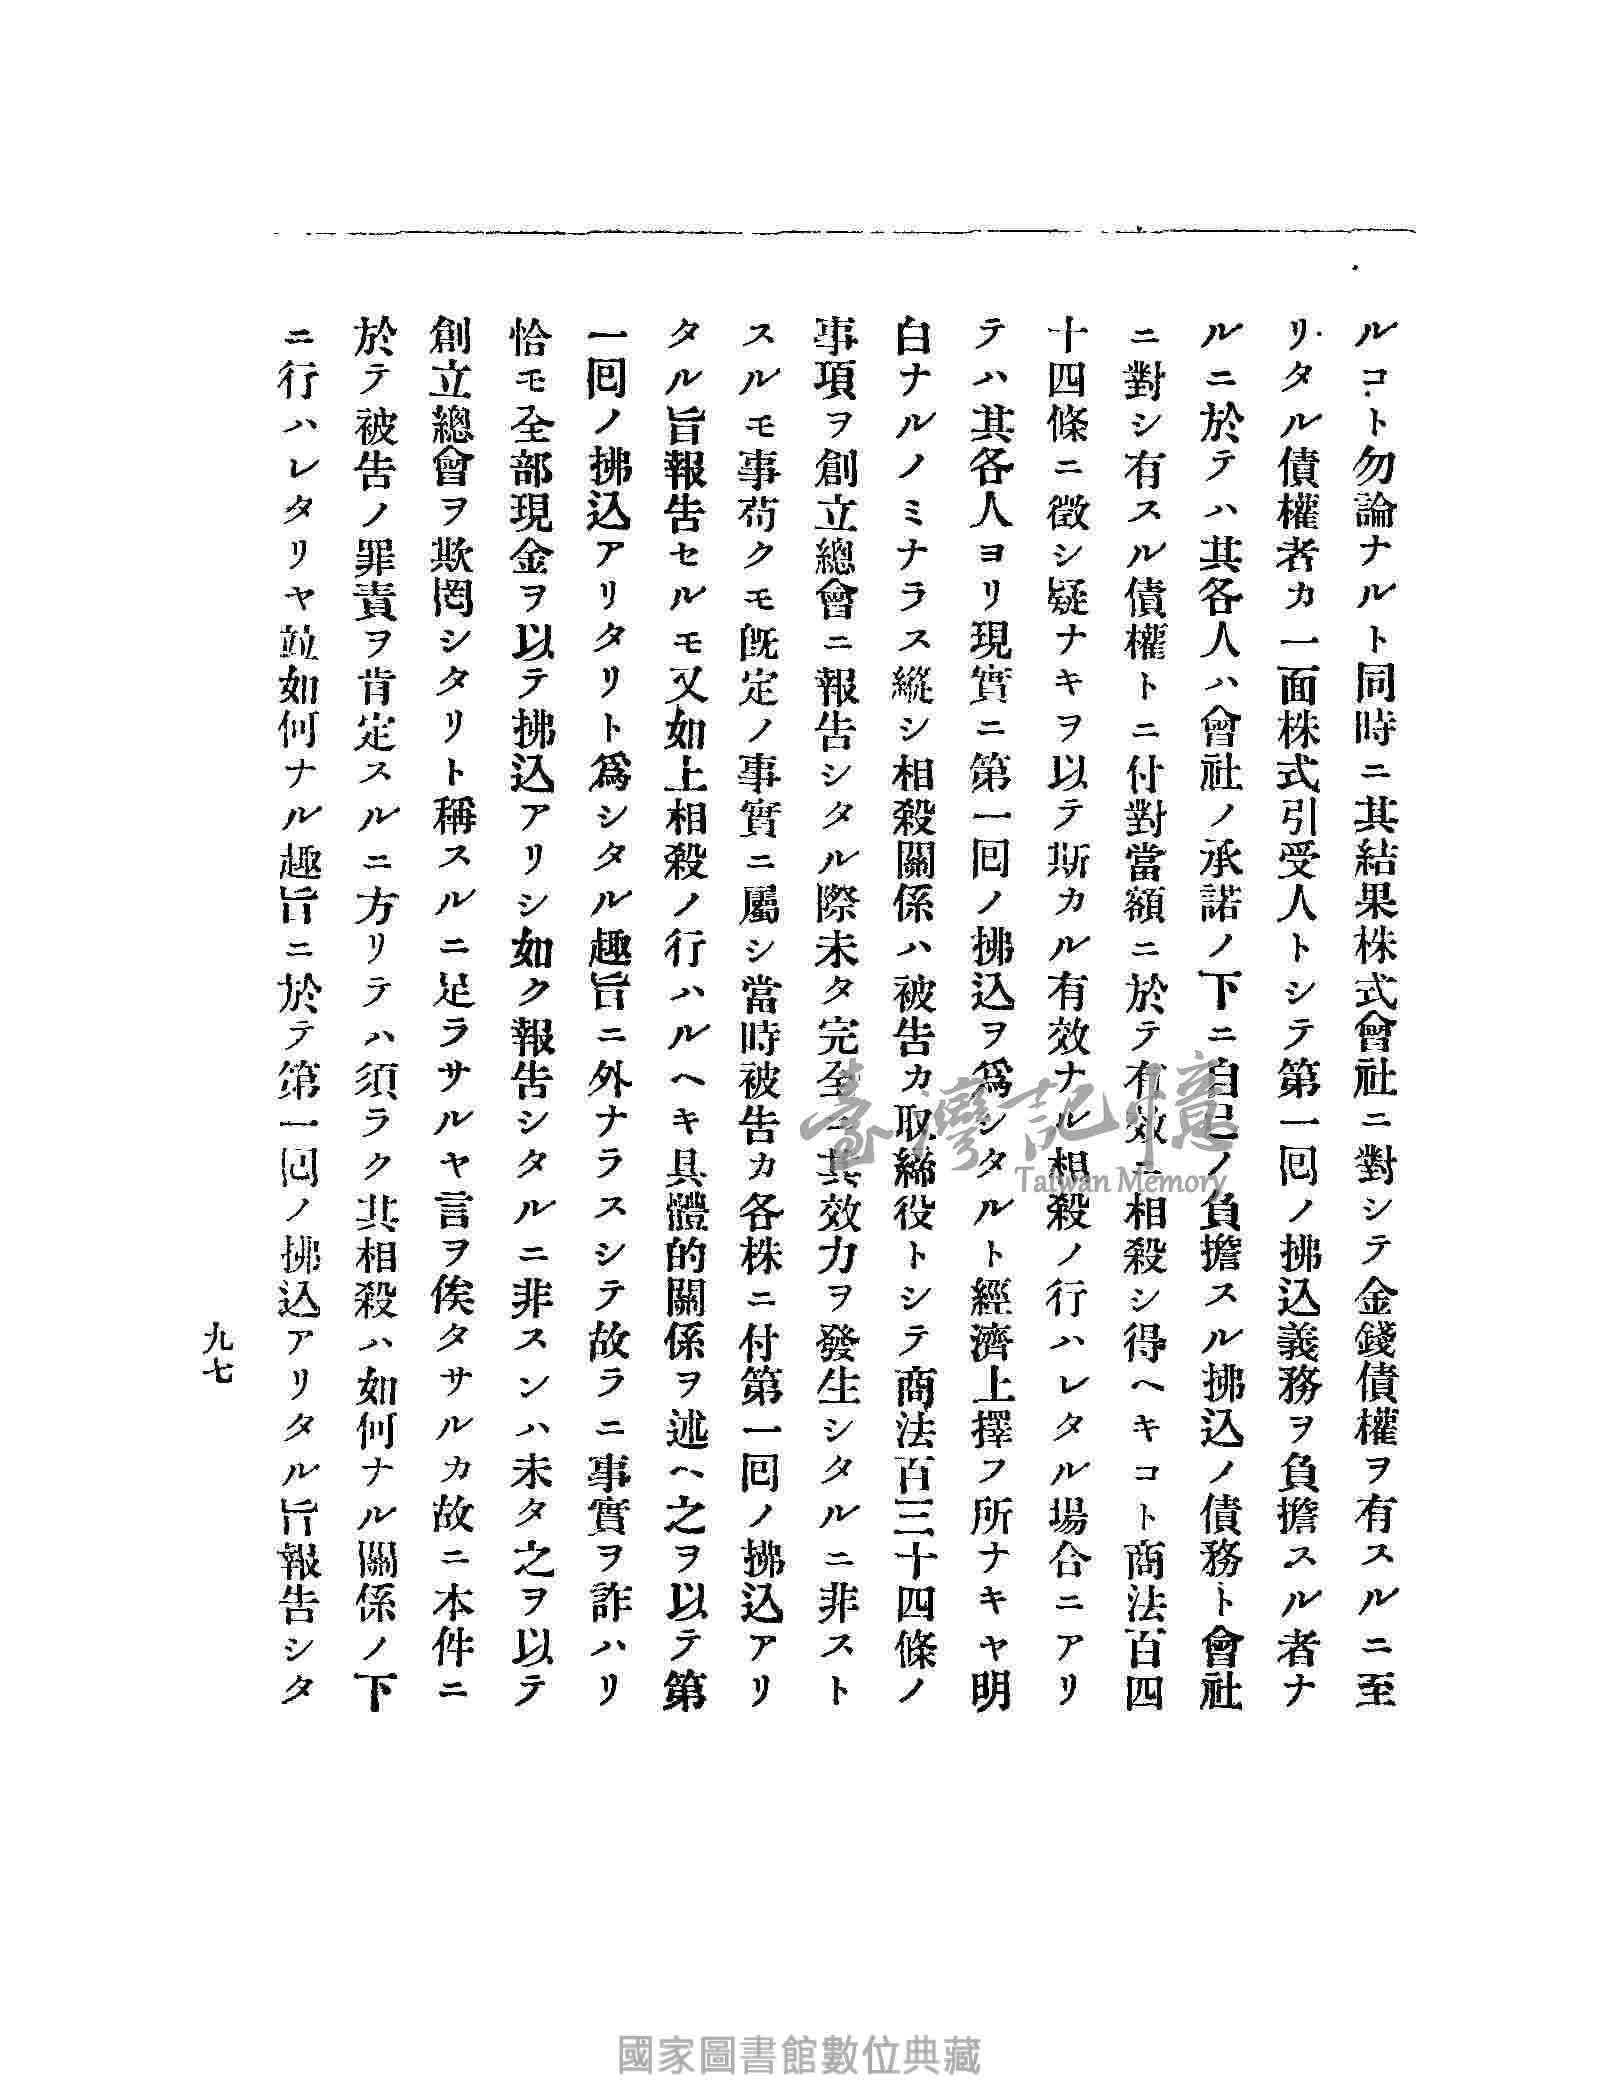 ルコト勿論ナルト同時ニ其結果株式會社ニ對シテ金錢債權ヲ有スルニ至
リタル債權者カ一面株式引受人トシテ第一回ノ拂込義務ヲ負擔スル者ナ
ルニ於テハ其各人ハ會社ノ承諾ノ下ニ自己ノ負擔スル拂込ノ債務ト會社
ニ對シ有スル債權トニ付對當額ニ於テ有效ニ相殺シ得ヘキコト商法百四
十四條ニ徵シ疑ナキヲ以テ斯カル有效ナル相殺ノ行ハレタル場合ニアリ
テハ其各人ヨリ現實ニ第一回ノ拂込ヲ爲シタルト經濟上擇フ所ナキヤ明
白ナルノミナラス縱シ相殺關係ハ被告カ取締役トシテ商法百三十四條ノ
事項ヲ創立總會ニ報告シタル際未タ完全ニ其效力ヲ發生シタルニ非スト
スルモ事苟クモ旣定ノ事實ニ屬シ當時被告カ各株ニ付第一回ノ拂込アリ
タル旨報告セルモ又如上相殺ノ行ハルヘキ具體的關係ヲ述ヘ之ヲ以テ第
一回ノ拂込アリタリト爲シタル趣旨ニ外ナラスシテ故ラニ事實ヲ詐ハリ
恰モ全部現金ヲ以テ拂込アリシ如ク報告シタルニ非スンハ未タ之ヲ以テ
創立總會ヲ欺罔シタリト稱スルニ足ラサルヤ言ヲ俟タサルカ故ニ本件ニ
於テ被告ノ罪責ヲ肯定スルニ方リテハ須ラク其相殺ハ如何ナル關係ノ下
ニ行ハレタリヤ竝如何ナル趣旨ニ於テ第一回ノ拂込アリタル旨報告シタ
九七
臺灣記憶
Taiwan Memory
國家圖書館數位典藏